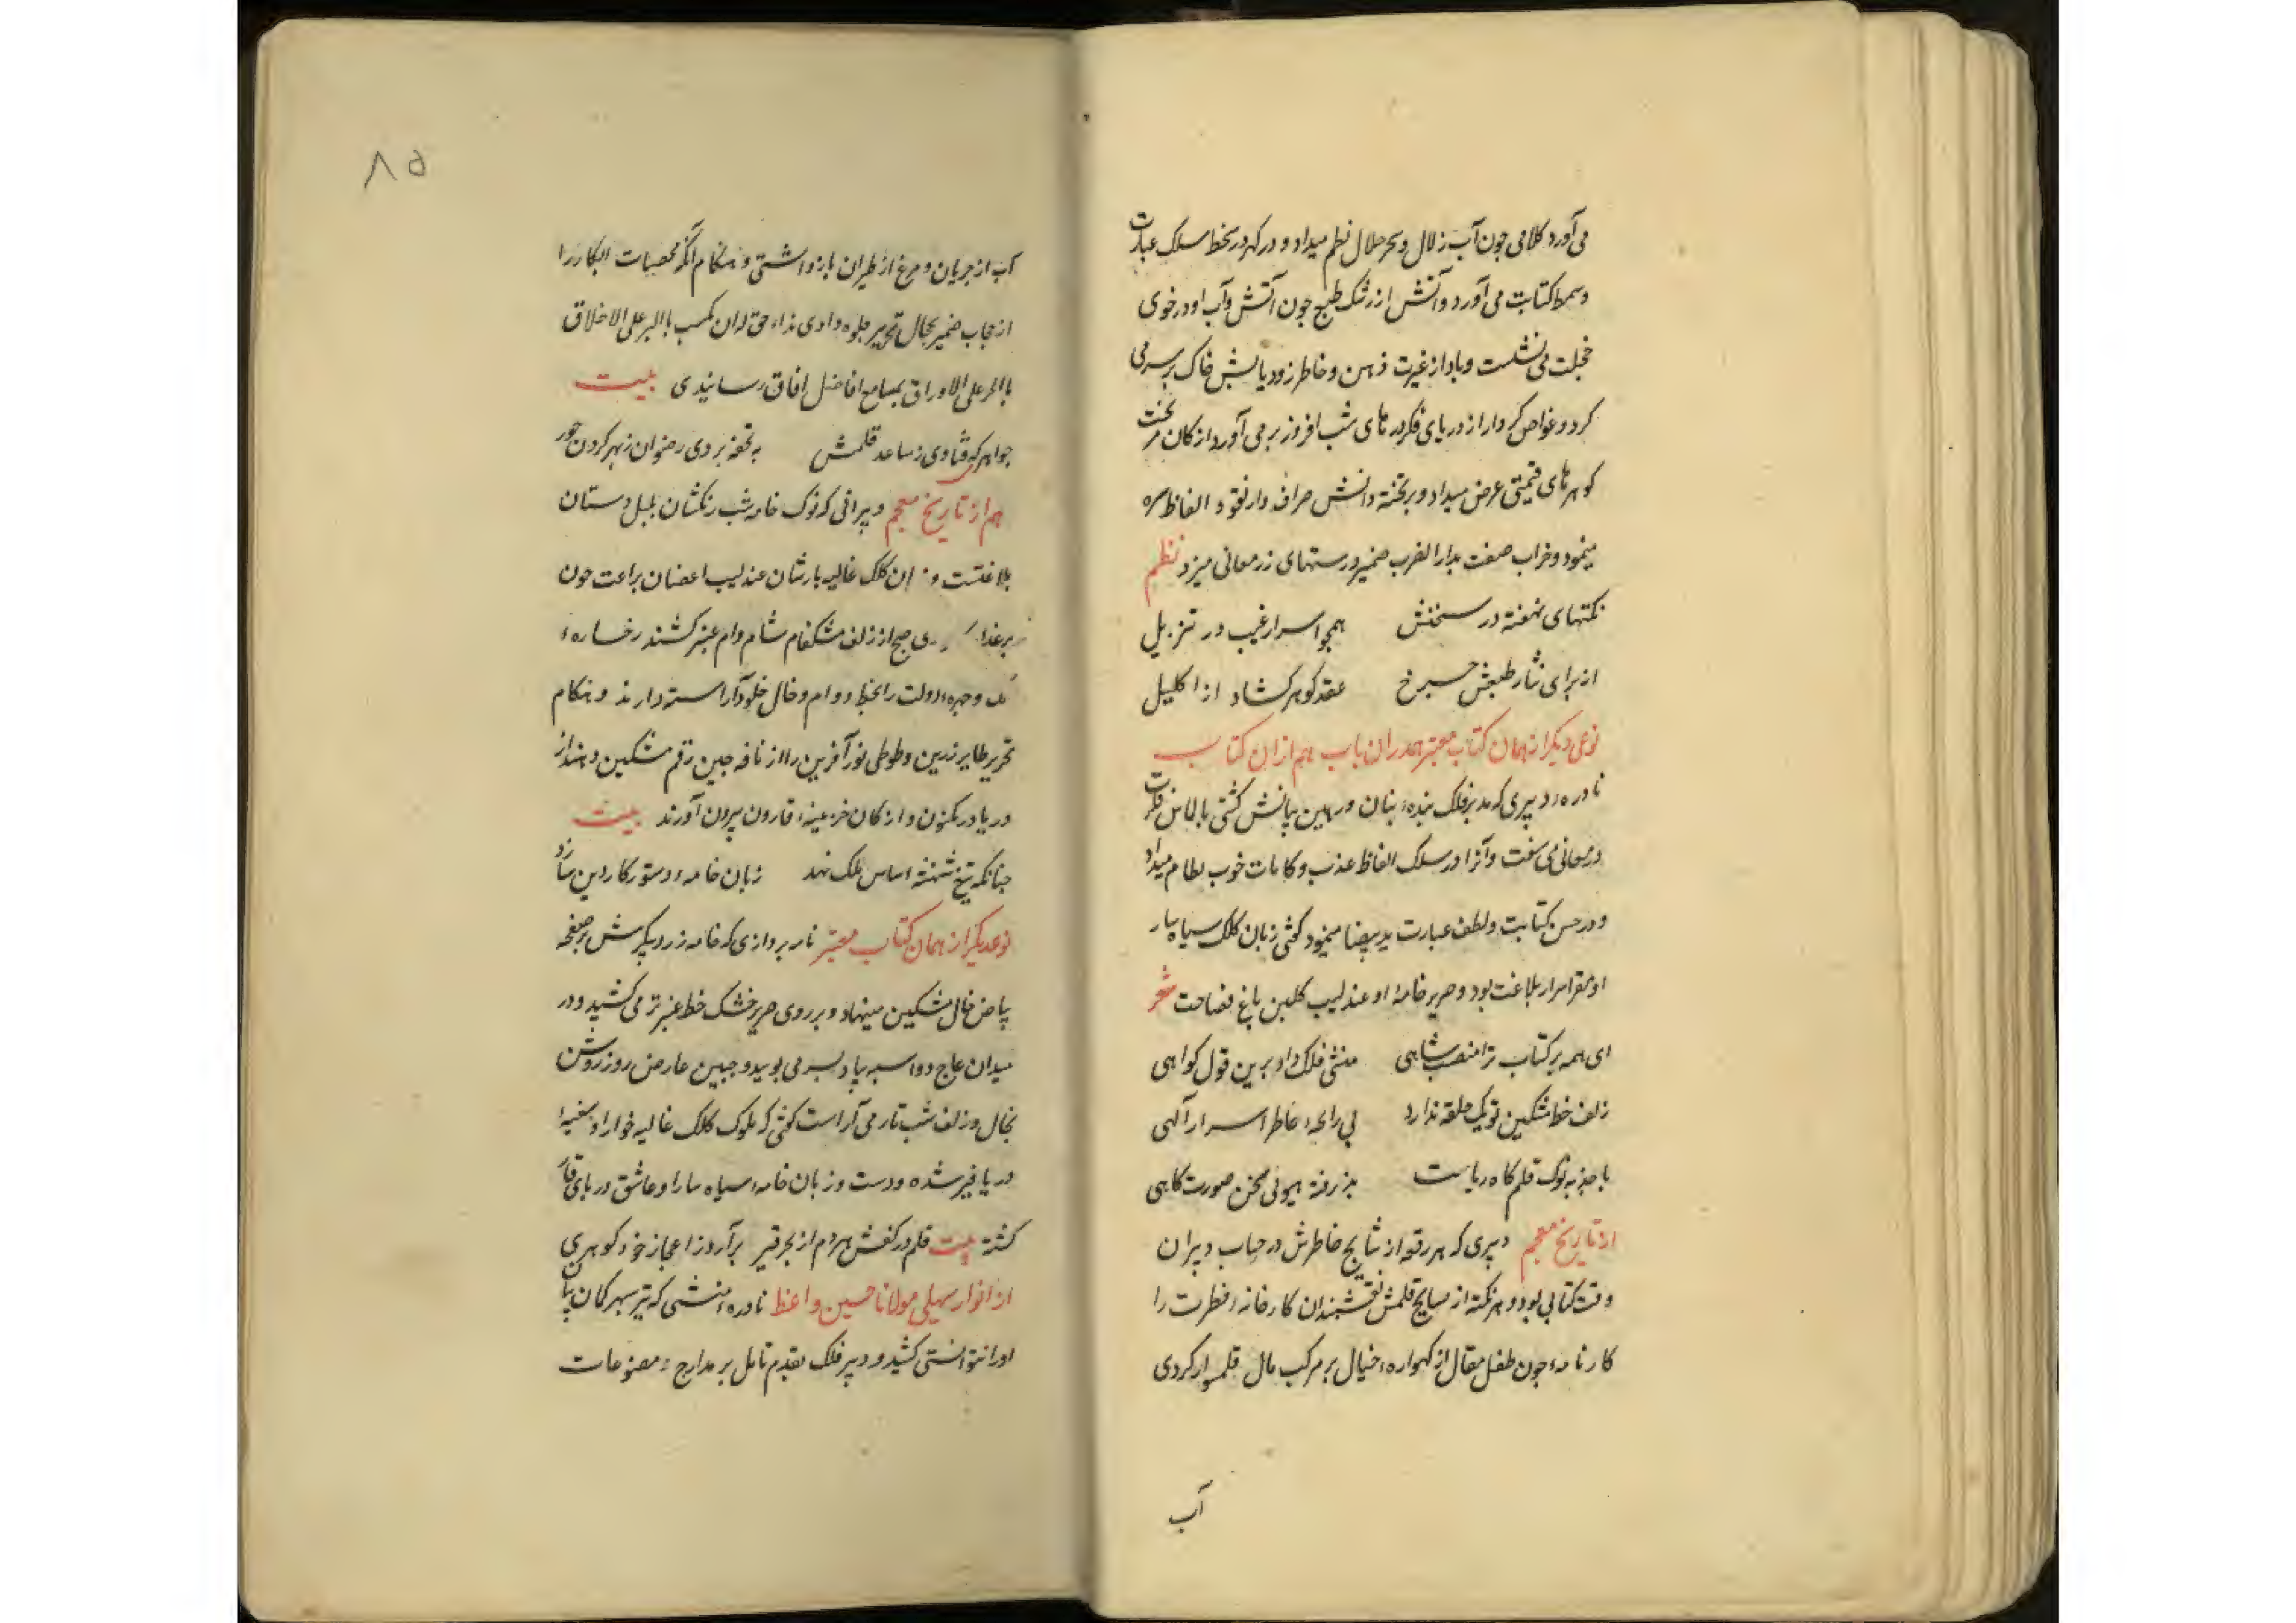 می آورد کلامی چون آب زلال و سحر حلال نظم میداد و در کهر در سخط سلک عبارت
و سمط کتابت می آورد و آتش از رشک طبع چون آتش و آب او در خوی
خجلت می نشست و باد از غیرت ذهن و خاطر زود یابش خاک بر سر می
کرد و غواص کردار از دریای فکر در های شب افروز بر می آورد از کان
کوهر های قیمتی عرض میداد و بر تخته دانش صراف وار نقود الفاظ سره
مینمود و ضراب صفت بدار الضرب ضمیر درستهای زر معانی میزد نظم
نکتهای نهفته در سخنش همچو اسرار غیب در تنزیل
از برای نثار طبعش چرخ عقد کوهر کشاد از اکلیل
نوعی دیکر از همان کتاب معتبر هم در ان باب هم از ان کتاب
نادره دبیری که مدبر فلک بنده بنان و رهین بیانش کشتی بالماس فکرت
در معانی می سفت و آنرا در سلک الفاظ عذب و کلمات خوب نظام میداد
و در حسن کتابت و لطف عبارت ید بیضا مینمود کوئی زبان کلک سیاه سار
او مقر اسرار بلاغت بود و صریر خامه او عندلیب کلبن باغ فصاحت شعر
ای همه بر کتاب ترا منصب شاهی منشی فلک داد برین قول کواهی
زلف خط مشکین تو یک حلقه ندارد بی رایحه خاطر اسرار آلهی
با جذبه نوک قلم کاه ربایت پذرفته هیولی سخن صورت کاهی
از تاریخ معجم دبیری که هر رقعه از نتایج خاطرش در حساب دبیران
وقت کتابی بود و هر نکته از سوانح قلمش نقشبندان کارخانه فطرت را
کارنامه چون طفل مقال از کهواره خیال بر مرکب مال قلم سوار کردی
آب
۸۵
آب از جریان و مرغ از طیران بازداشتی و هنکام آنکه مخصبات ابکار را
از حجاب ضمیر بحال تحریر جلوه دادی هذاء حق لدان یکتب بالتبر علی الاخلاق
بالحر علی الاوراق بمسامع افاضل افاق رسانیدی بیت
جواهر که فتادی ز ساعد قلمش به تحفه بردی رضوان ز بهر کردن حور
هم از تاریخ معجم دبیرانی که نوک خامه شب رنکشان بلبل دستان
بلاغتست و زبان کلک غالیه بارشان عندلیب اغصان براعت چون
بر عذار صبح از زلف مشکفام شام دام عنبر کشند رخساره
و چهره دولت را بخط دوام و خال خلود آراسته دارند و بهنکام
تحریر طایر زرین و طوطی نور آفرین را از نافه چین رقم مشکین دهند از
دریا در مکنون و از کان خزینه قارون بیرون آورند بیت
چنانکه تیغ شهنشه اساس ملک نهد زبان خامه دستور کار دین سازد
نوع دیکر از همان کتاب معتبر نامه پردازی که خامه زرد پیکرش بر صفحه
بیاض خال مشکین مینهاد و بر روی حریر خشک خط عنبر تر می کشید و در
میدان عاج دو اسبه پیاده بسر می پویید و جبین عارض روز روشن
بخال و زلف شب تار می آراست کوئی که ملوک کلک غالیه خوار او سفینه
دریا قیر شده و دست و زبان خامه سیاه سار او عاشق دریای قار
کشته بیت قلم در کفش هر دم از بحر قیر برآرد ز اعجاز خود کوهری
از انوار سهیلی مولانا حسین واعظ نادره منشی که تیر سپهر کمان بیان
او را نتوانستی کشید و دبیر فلک بقدم تامل بر مدارج مصنوعات